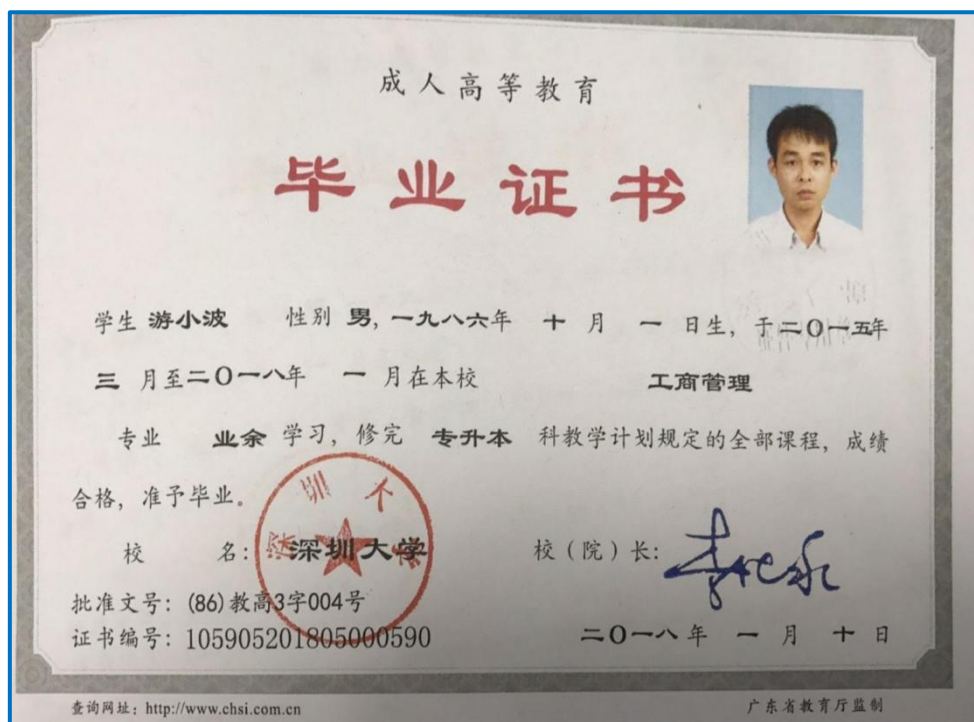 成人高等教育
毕业证书
学生 游小波 性别 男, 一九八六年 十 月 一 日生, 于二〇一五年
三 月至二〇一八年 一 月在本校 工商管理
专业 业余 学习, 修完 专升本 科教学计划规定的全部课程, 成绩
合格, 准予毕业。
校 名: 深圳大学 校(院)长:
批准文号: (86)教高3字004号
证书编号: 105905201805000590
二〇一八年 一 月 十 日
查询网址: http://www.chsi.com.cn 广东省教育厅监制